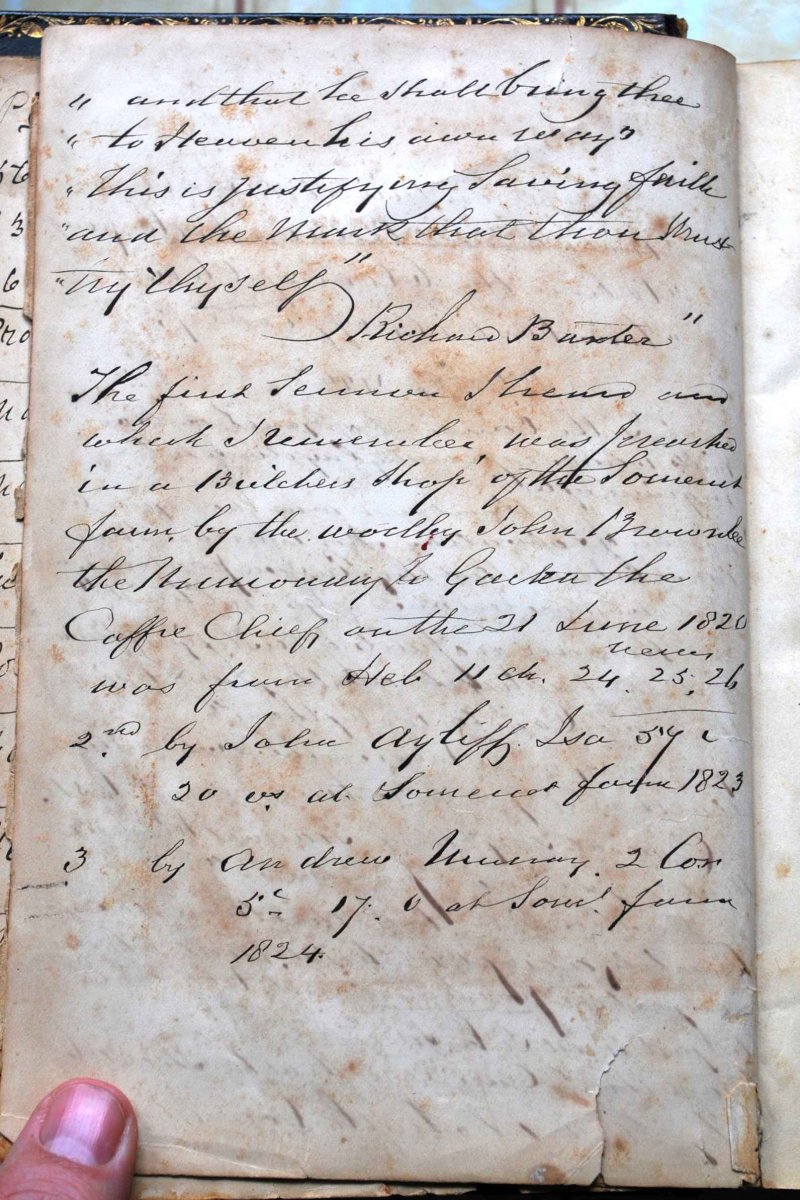 " and that he shall bring thee
" to Heaven his own way"
" This is justifying Saving faith
" and the Mark that thou Must
" try thyself"
Richard Baxter"
The first Sermon I heard and
which I remember, was preached
in a Butchers Shop of the Somerset
farm, by the worthy John Brownlee
the Missionary to Gaeka the
Caffre Chief, on the 21 June 1820
verses
was from Heb 11 ch. 24. 25. 26
2nd. by John Ayliff. Isa 57 c
20 vs at Somerset farm 1823
3 by Andrew Murray. 2 Cor
5c 17. v at Somt. farm
1824.
P
56
3
6